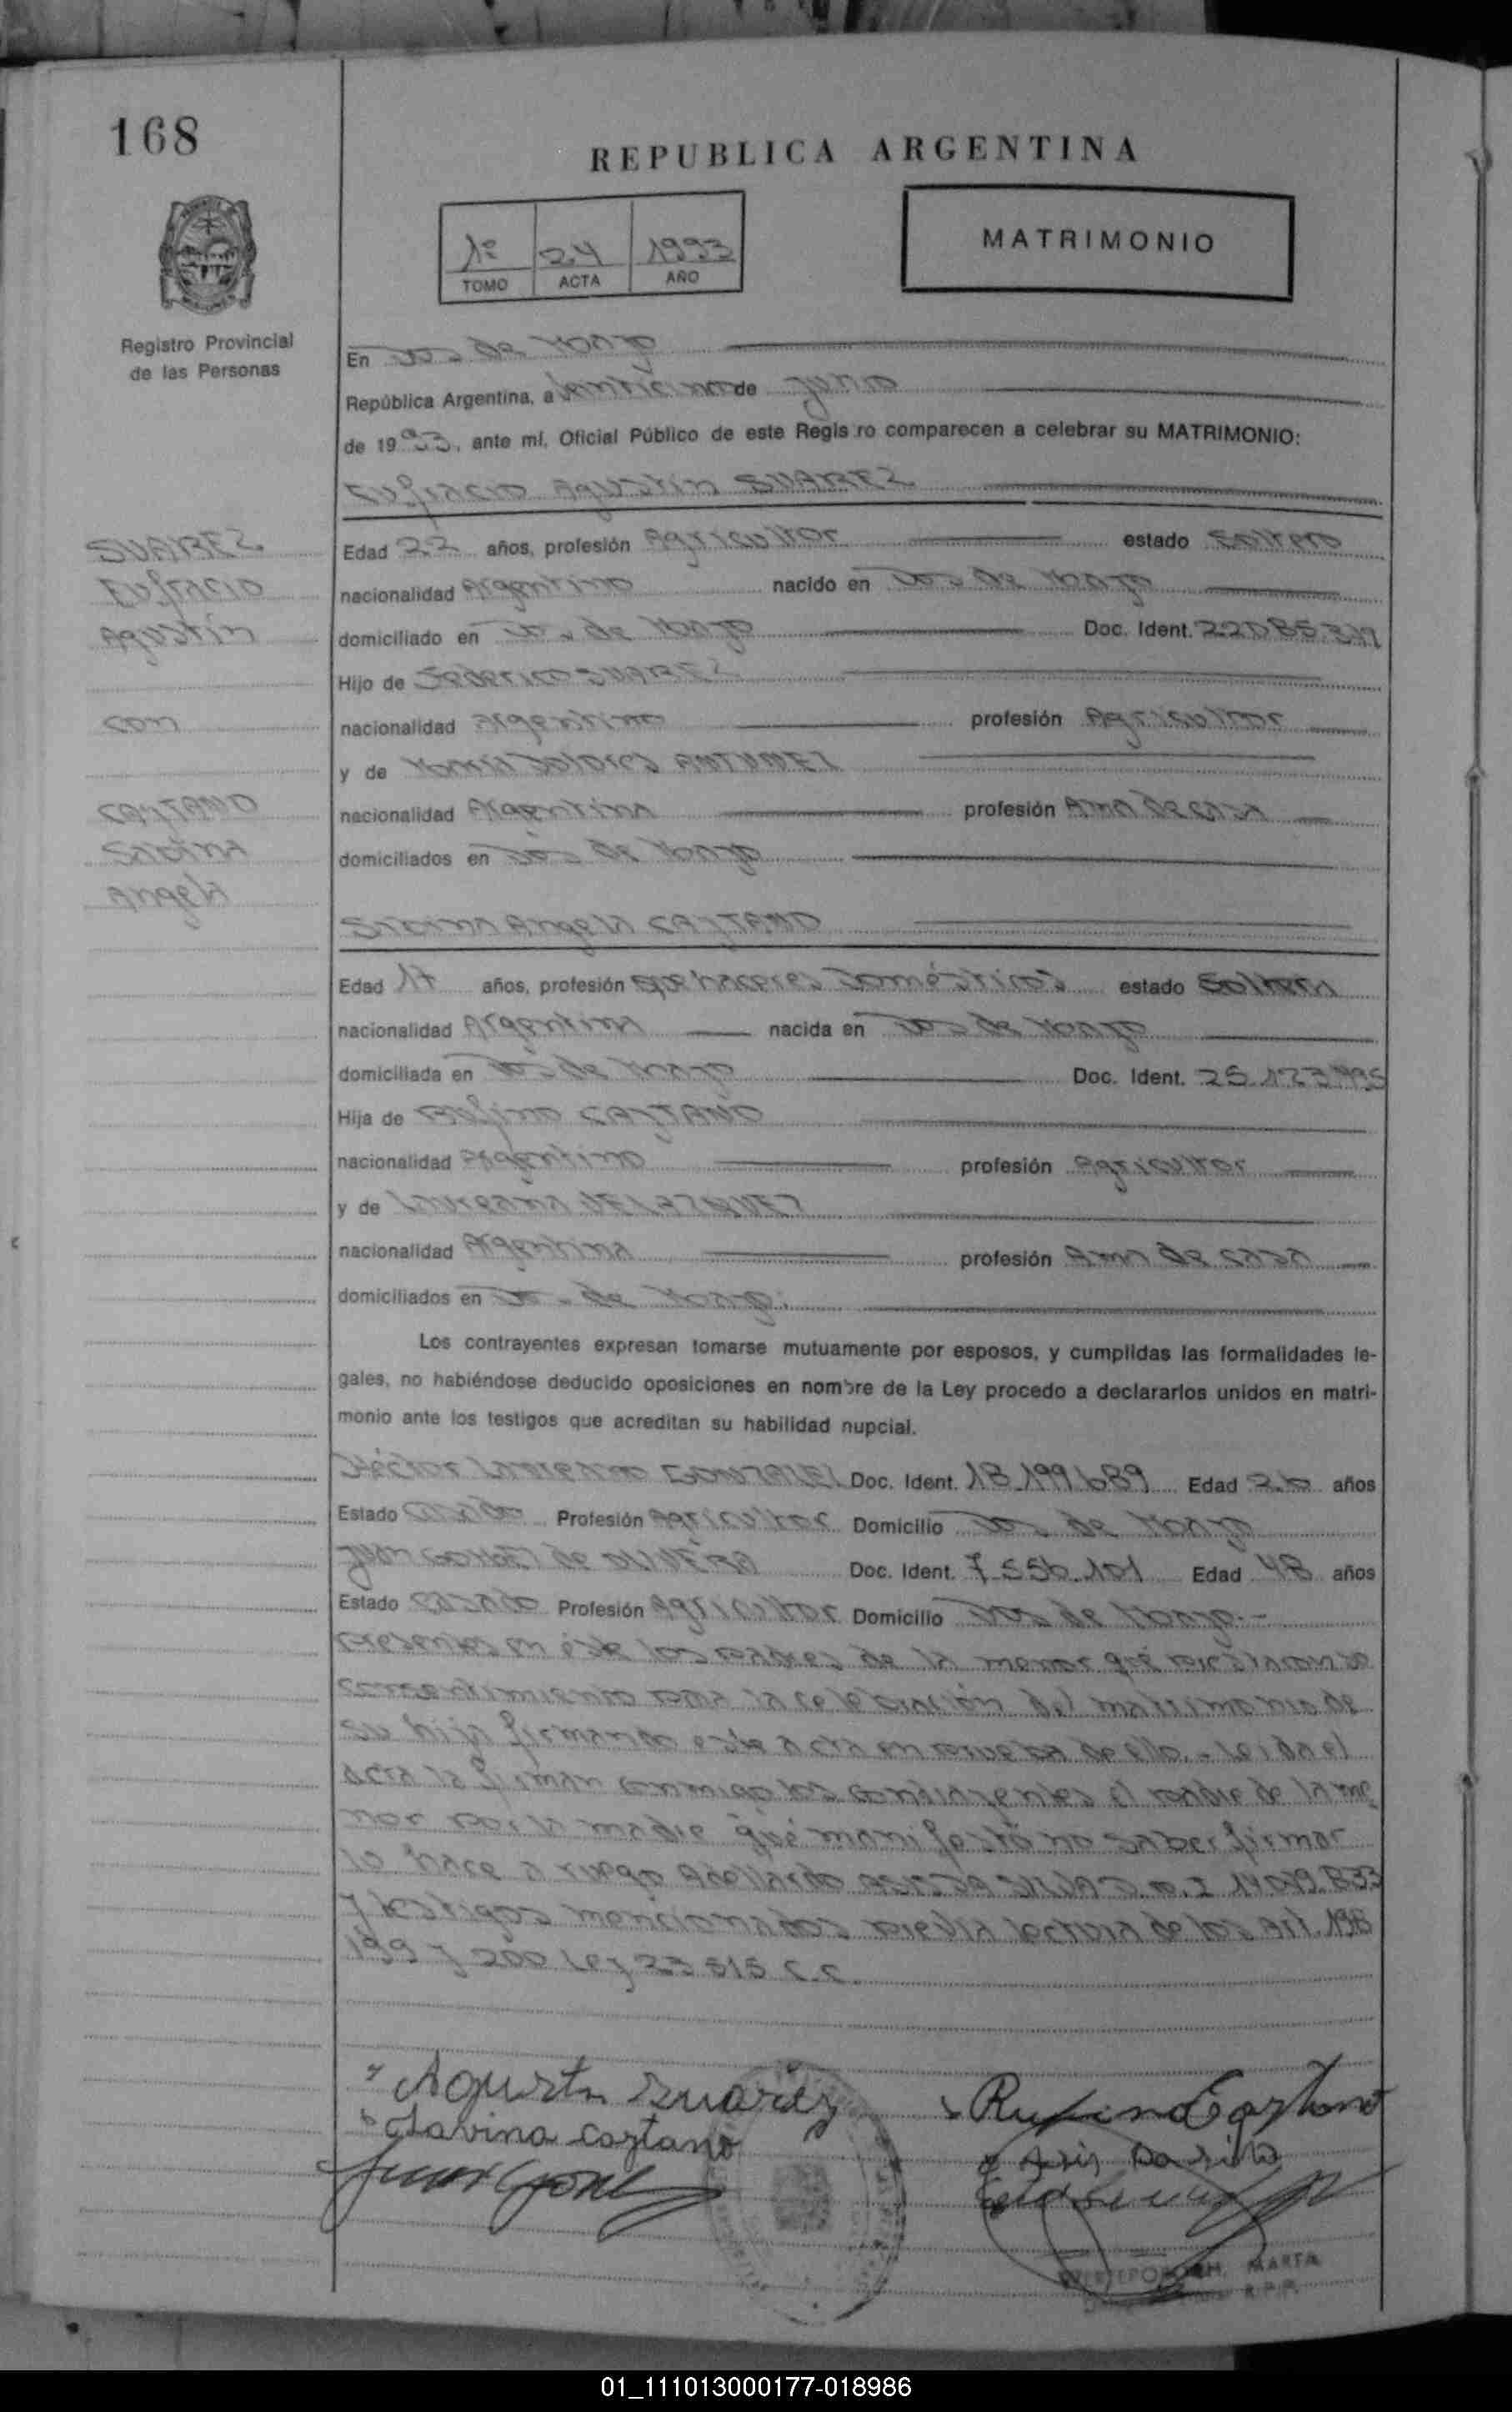 168
REPUBLICA ARGENTINA
1º 24 1993
TOMO ACTA AÑO
MATRIMONIO
Registro Provincial
de las Personas
En Dos de Mayo
República Argentina, a Veinticinco de Junio
de 1993, ante mí, Oficial Público de este Regis ro comparecen a celebrar su MATRIMONIO:
Eufracio Agustín SUAREZ
SUAREZ
Eufracio
Agustín
con
CAYTANO
Savina
Angela
Edad 22 años, profesión Agricultor estado Soltero
nacionalidad Argentino nacido en Dos de Mayo
domiciliado en Dos de Mayo Doc. Ident.
Hijo de Federico SUAREZ
nacionalidad Argentino profesión Agricultor
y de María Dolores ANTUNEZ
nacionalidad Argentina profesión Ama de casa
domiciliados en Dos de Mayo
Savina Angela CAYTANO
Edad 17 años, profesión quehaceres domésticos estado Soltera
nacionalidad Argentina nacida en Dos de Mayo
domiciliada en Dos de Mayo Doc. Ident.
Hija de Rufino CAYTANO
nacionalidad Argentino profesión Agricultor
y de Laureana VELAZQUEZ
nacionalidad Argentina profesión Ama de casa
domiciliados en Dos de Mayo.
Los contrayentes expresan tomarse mutuamente por esposos, y cumplidas las formalidades le-
gales, no habiéndose deducido oposiciones en nombre de la Ley procedo a declararlos unidos en matri-
monio ante los testigos que acreditan su habilidad nupcial.
Héctor Laureano GONZALEZ Doc. Ident. 18.199.689 Edad 26 años
Estado Casado Profesión Agricultor Domicilio Dos de Mayo
Juan GOMEZ de OLIVERA Doc. Ident. 7.556.101 Edad 48 años
Estado Casado Profesión Agricultor Domicilio Dos de Mayo.-
Presentes en éste los padres de la menor qué prestaron su
consentimiento para la celebración del matrimonio de
su hija firmando este acta en prueba de ello.- Leída el
acta la firman conmigo los contrayentes el padre de la me
nor por la madre qué manifestó no saber firmar
lo hace a ruego D.I 14.049.833
y testigos mencionados previa lectura de los Art. 198
199 y 200 Ley 23.515 C.C.
Agustin Suarez
Savina Caytano
Rufino Caytano
MARTA
R.P.P.
01_111013000177-018986